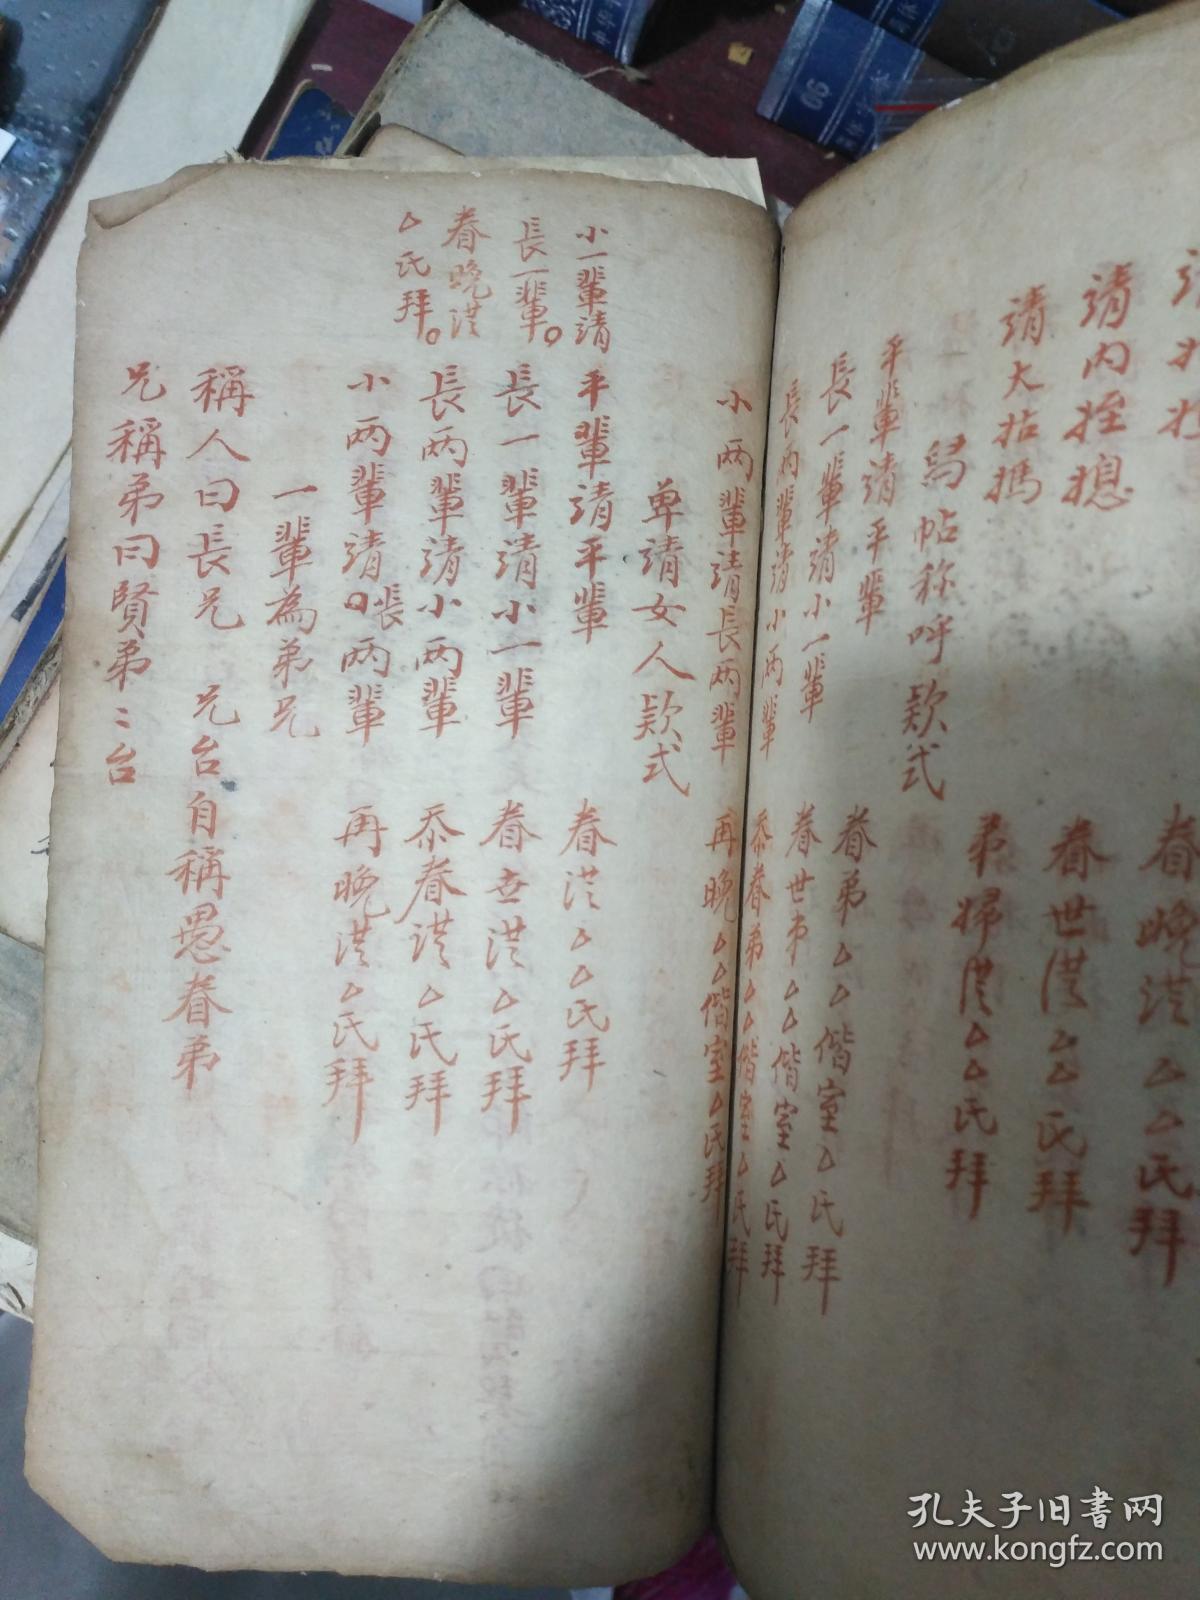 眷晚㳸△△氏拜
請内姪媳
眷世㳸△△氏拜
請大姑媽
弟婦㳸△△氏拜
寫帖称呼款式
平輩請平輩 眷弟△△偕室△氏拜
長一輩請小一輩 眷世弟△△偕室△氏拜
長两輩請小两輩 忝眷弟△△偕室△氏拜
小两輩請長两輩 再晚△△偕室△氏拜
单請女人款式
小一輩請
長一輩。
眷晚㳸
△氏拜。
平輩請平輩 眷㳸△△氏拜
長一輩請小一輩 眷世㳸△氏拜
長两輩請小两輩 忝眷㳸△氏拜
小两輩請長两輩 再晚㳸△氏拜
一輩為弟兄
稱人曰長兄 兄台自稱愚眷弟
兄稱弟曰賢弟 弟台
孔夫子旧书网
www.kongfz.com